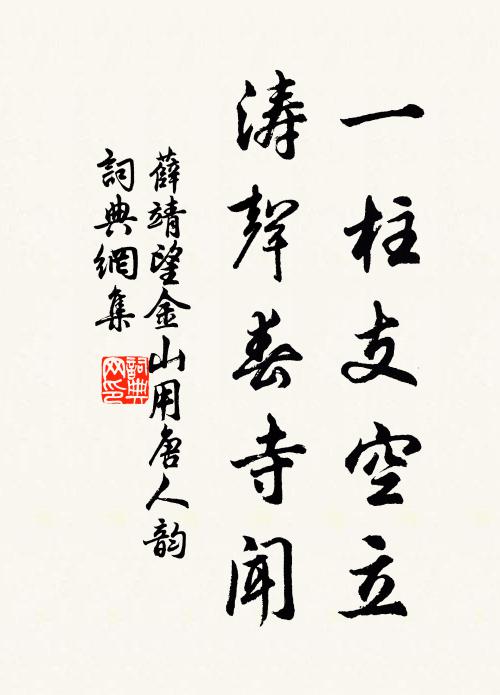 一柱支空立
濤聲春寺聞
薛靖望金山用唐人韵
詞典網集
詞典网印